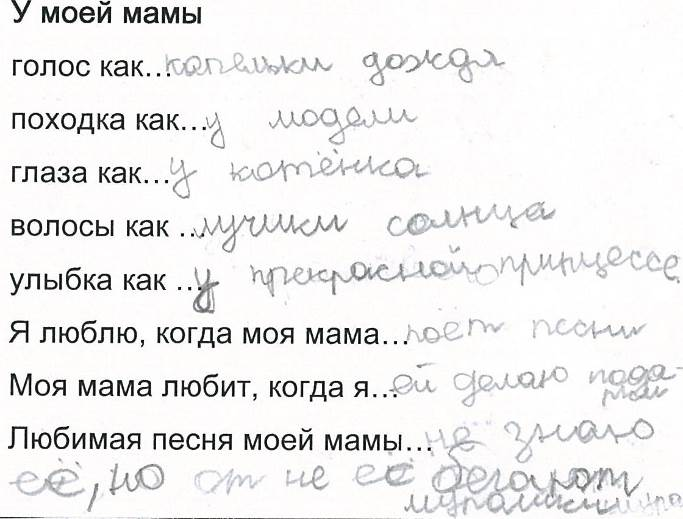 У моей мамы
голос как...капельки дождя
походка как...у модели
глаза как...у котёнка
волосы как ...лучики солнца
улыбка как ...у прекрасной принцессе
Я люблю, когда моя мама...поёт песни
Моя мама любит, когда я...ей делаю пода-
рки
Любимая песня моей мамы...не знаю
её, но от не её бегают
мурашки